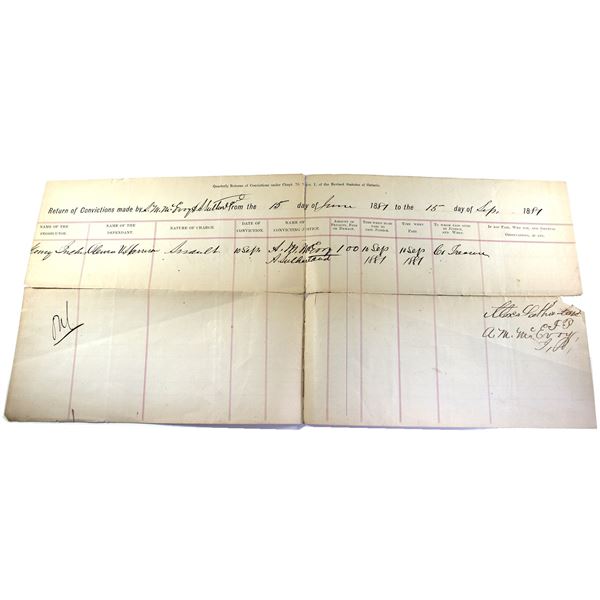 Quarterly Returns of Convictions under Chapt. 76, Sec. 1, of the Revised Statutes of Ontario.
Return of Convictions made by A. M. McEvoy & A Sutherland from the 15 day of June 1881 to the 15 day of Sep. 1881
NAME OF THE PROSECUTOR. NAME OF THE DEFENDANT. NATURE OF CHARGE. DATE OF CONVICTION. NAME OF CONVICTING JUSTICE. AMOUNT OF PENALTY, FINE OR DAMAGE. TIME WHEN PAID OR TO BE PAID TO SAID JUSTICE. TIME WHEN PAID. TO WHOM PAID OVER BY JUSTICE, AND WHEN. IF NOT PAID, WHY NOT, AND GENERAL OBSERVATIONS, IF ANY.
Morrison Assault 10 Sep A. M. McEvoy 1 00 10 Sep 10 Sep Co Treasurer
A Sutherland 1881 1881
Alex Sutherland
J P
A. M. McEvoy,
J. P.